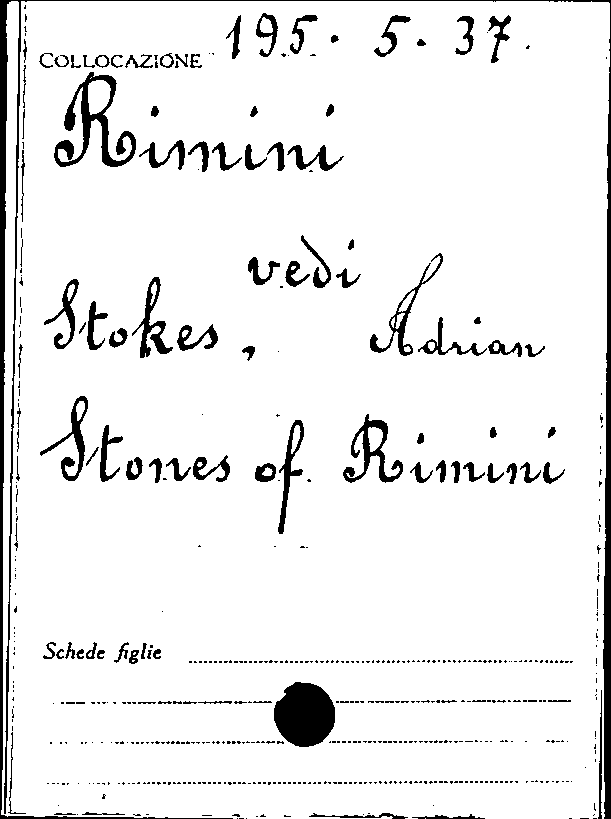 COLLOCAZIONE 195. 5. 37.
Rimini
vedi
Stokes, Adrian
Stones of Rimini
Schede figlie